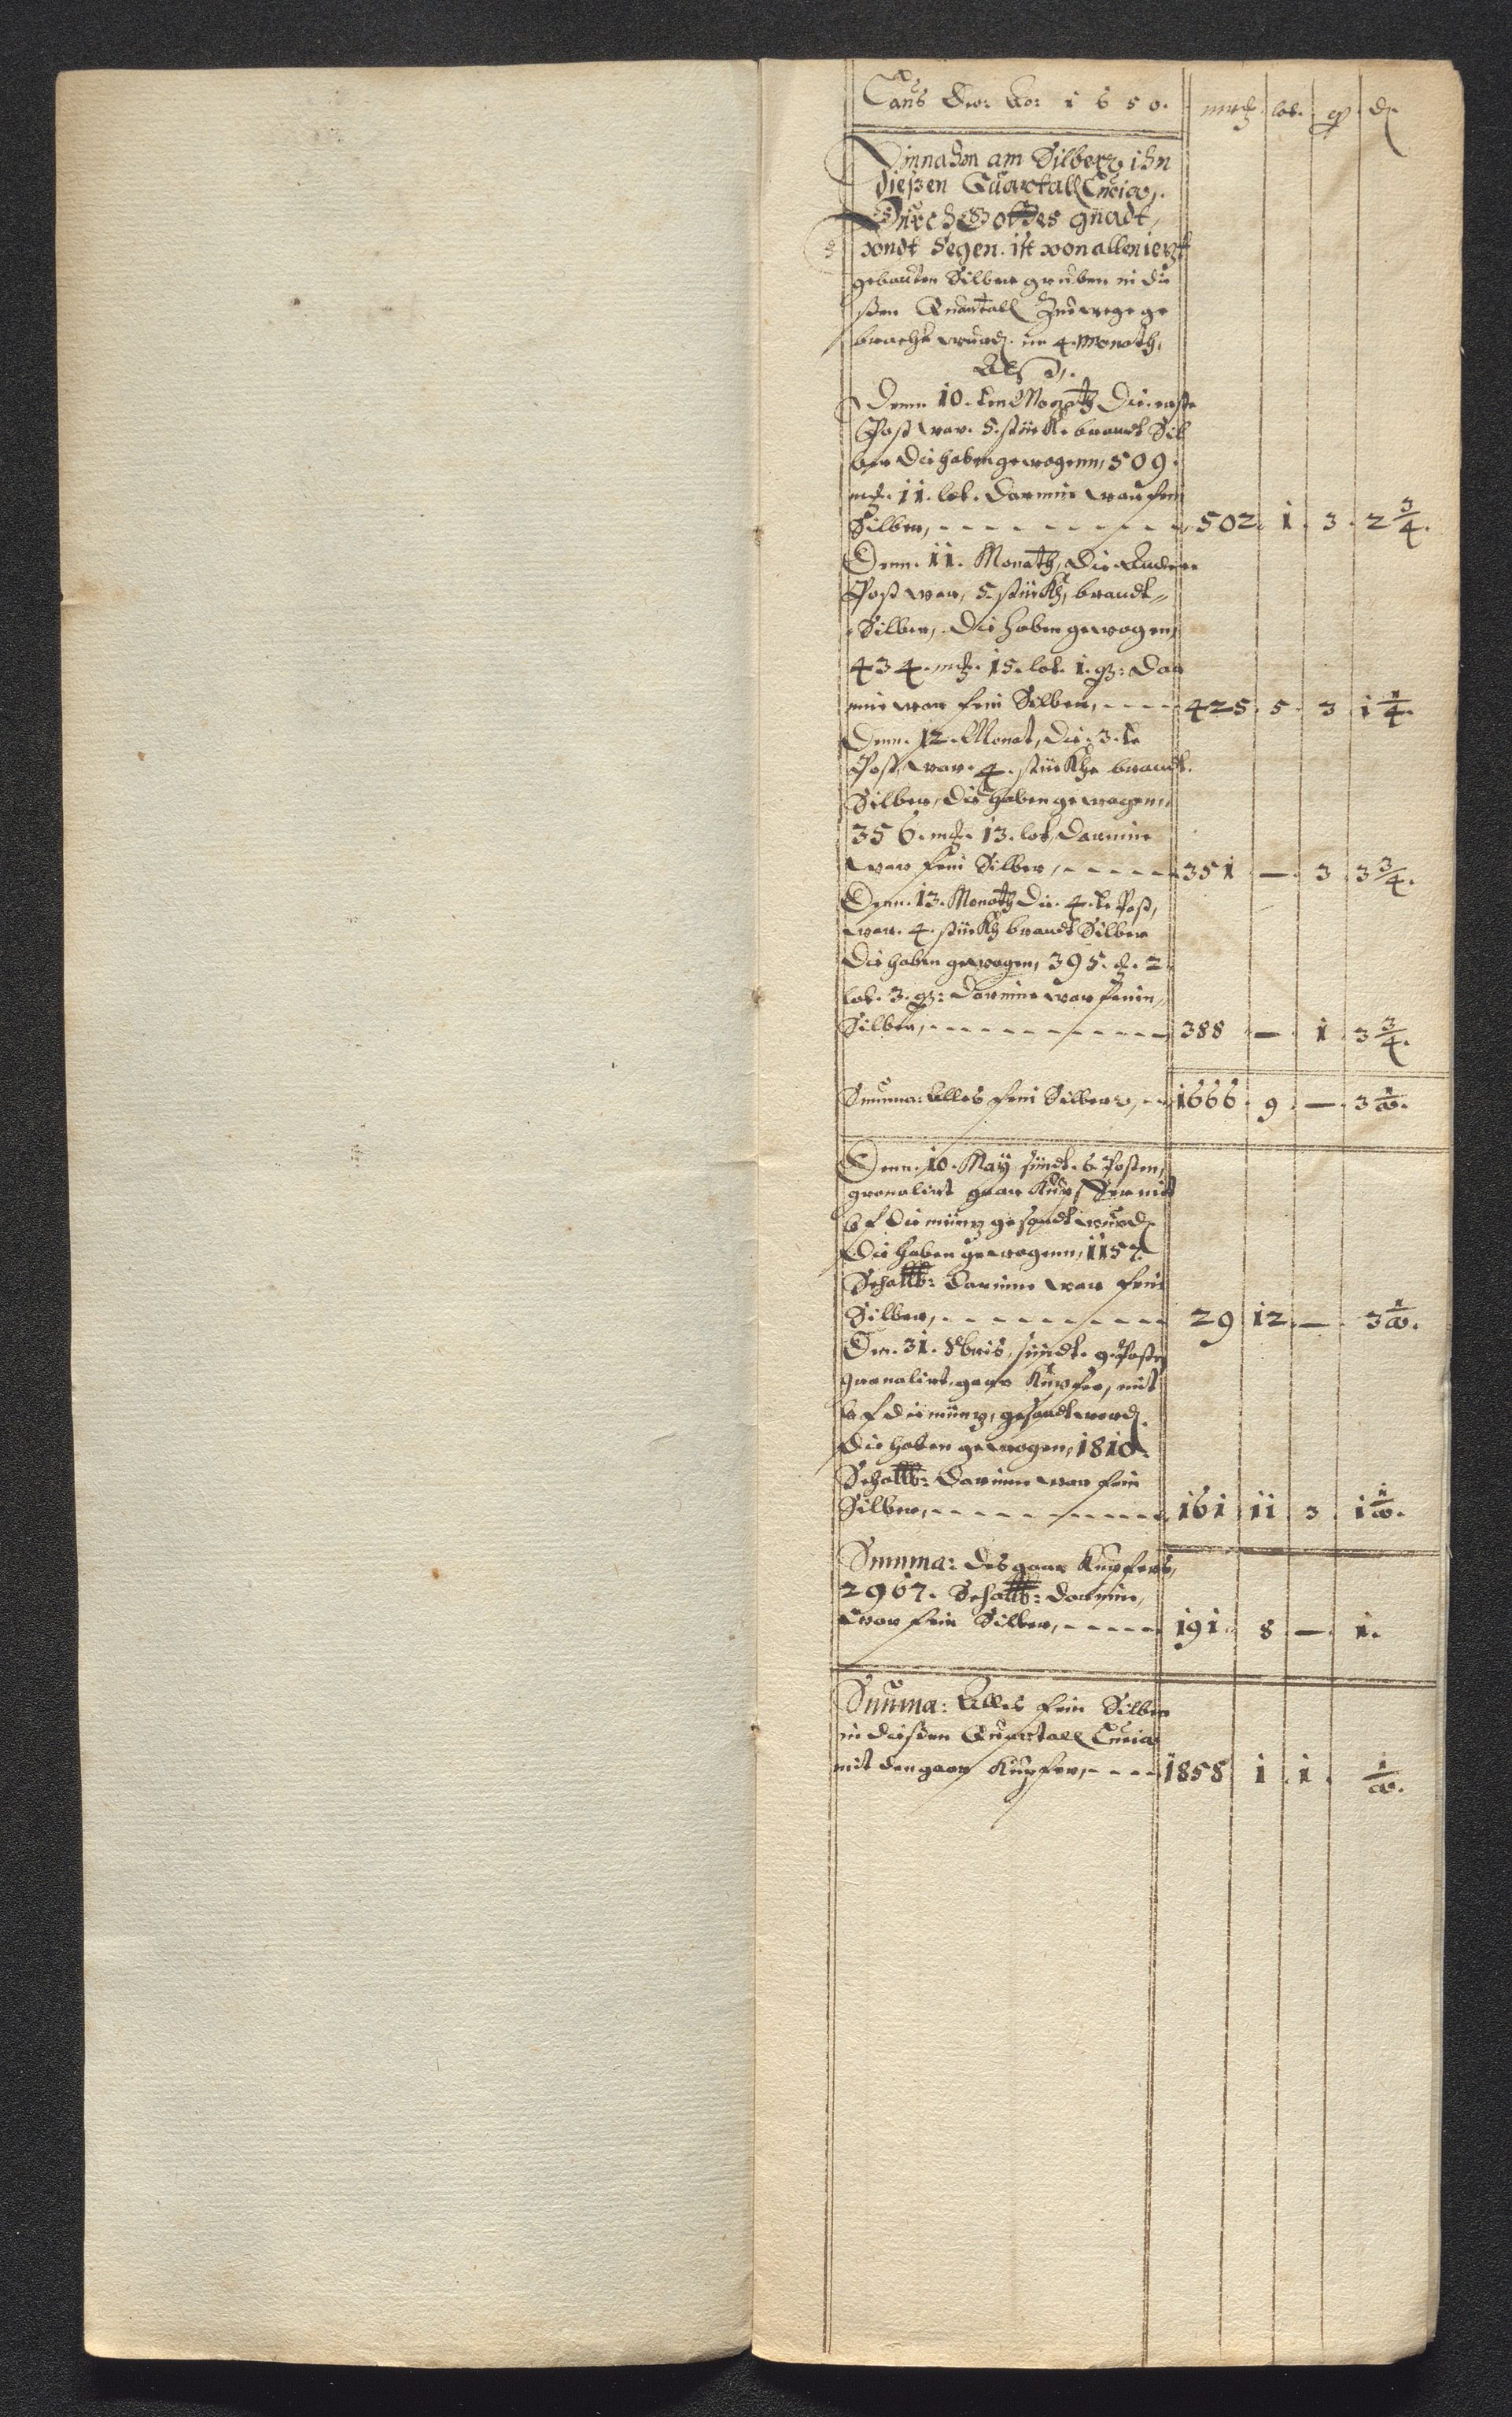 Laus Deo: Ao: 1650. mrck. lot. q. d.
Einnahm am Silberr, ihn
dießen Quartall Lucia,.
Durch Gottes gnadt,
vndt Segen. ist von allen ietzt
gebauten Silber gruben in die
ßen Quartall Zue wege ge
bracht wurd. in 4. Monath,
Als,.
Denn 10. ten Monatz Die erste
Post war. 5. stückh brandt Sil
ber Die haben gewogenn, 509.
mk. 11. lot. Darinne war fein
Silber, 502. 1. 3. 2 3/4.
Denn. 11. Monatz, Die Andere
Post war, 5. stückh, brandt
Silber, Die haben gewogen,
434. mk. 15. lot. 1. q: Dar
inne war fein Silber, 425. 5 3 1 1/4.
Denn. 12. Monat, Die. 3. te
Post, war. 4. stückhe brandt.
Silber, Die haben gewogenn,
356. mk. 13. lot, Darinne
war fein Silber, 351 — 3 3 3/4.
Denn. 13. Monatz Die. 4. te Post,
war. 4. stückh brandt Silber
Die haben gewogen, 395. k. 2
lot. 3. q: Darinne war feinn,
Silber, 388 — 1. 3 3/4.
Summa: Alles fein Silberr, 1666. 9. — 3 1/2.
Denn. 10. May sindt. 6 Posten,
granalirt gaar Kupfer mit
vf die müntz gesandt wurd.
Die haben gewogenn, 1157.
Schallb: Darinne war fein
Silber, 29 12. — 3 1/2.
Den. 31. 8bris, sindt. 9. Posten
granalirt gaar Kupfer, mit
vf die müntz, gesandt word.
Die haben gewogen, 1810.
Schallb: Darinne war fein
Silber, 161 11 3. 1 1/2.
Summa: des gaar Kupfers,
2967. Schallb: Darinne,
war fein Silber, 191. 8 — 1.
Summa: Alles fein Silber
in dießen Quartall Lucia
mit den gaar Kupfer, 1858 1 1. 1/2.